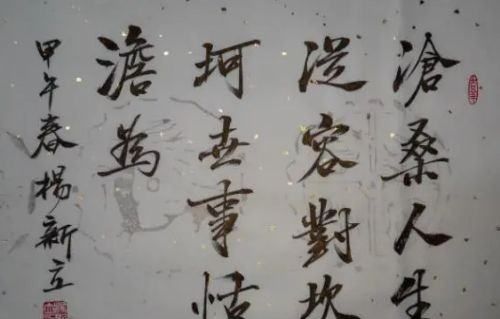 滄桑人生
從容對坎
坷世事恬
澹為
甲午春楊新立